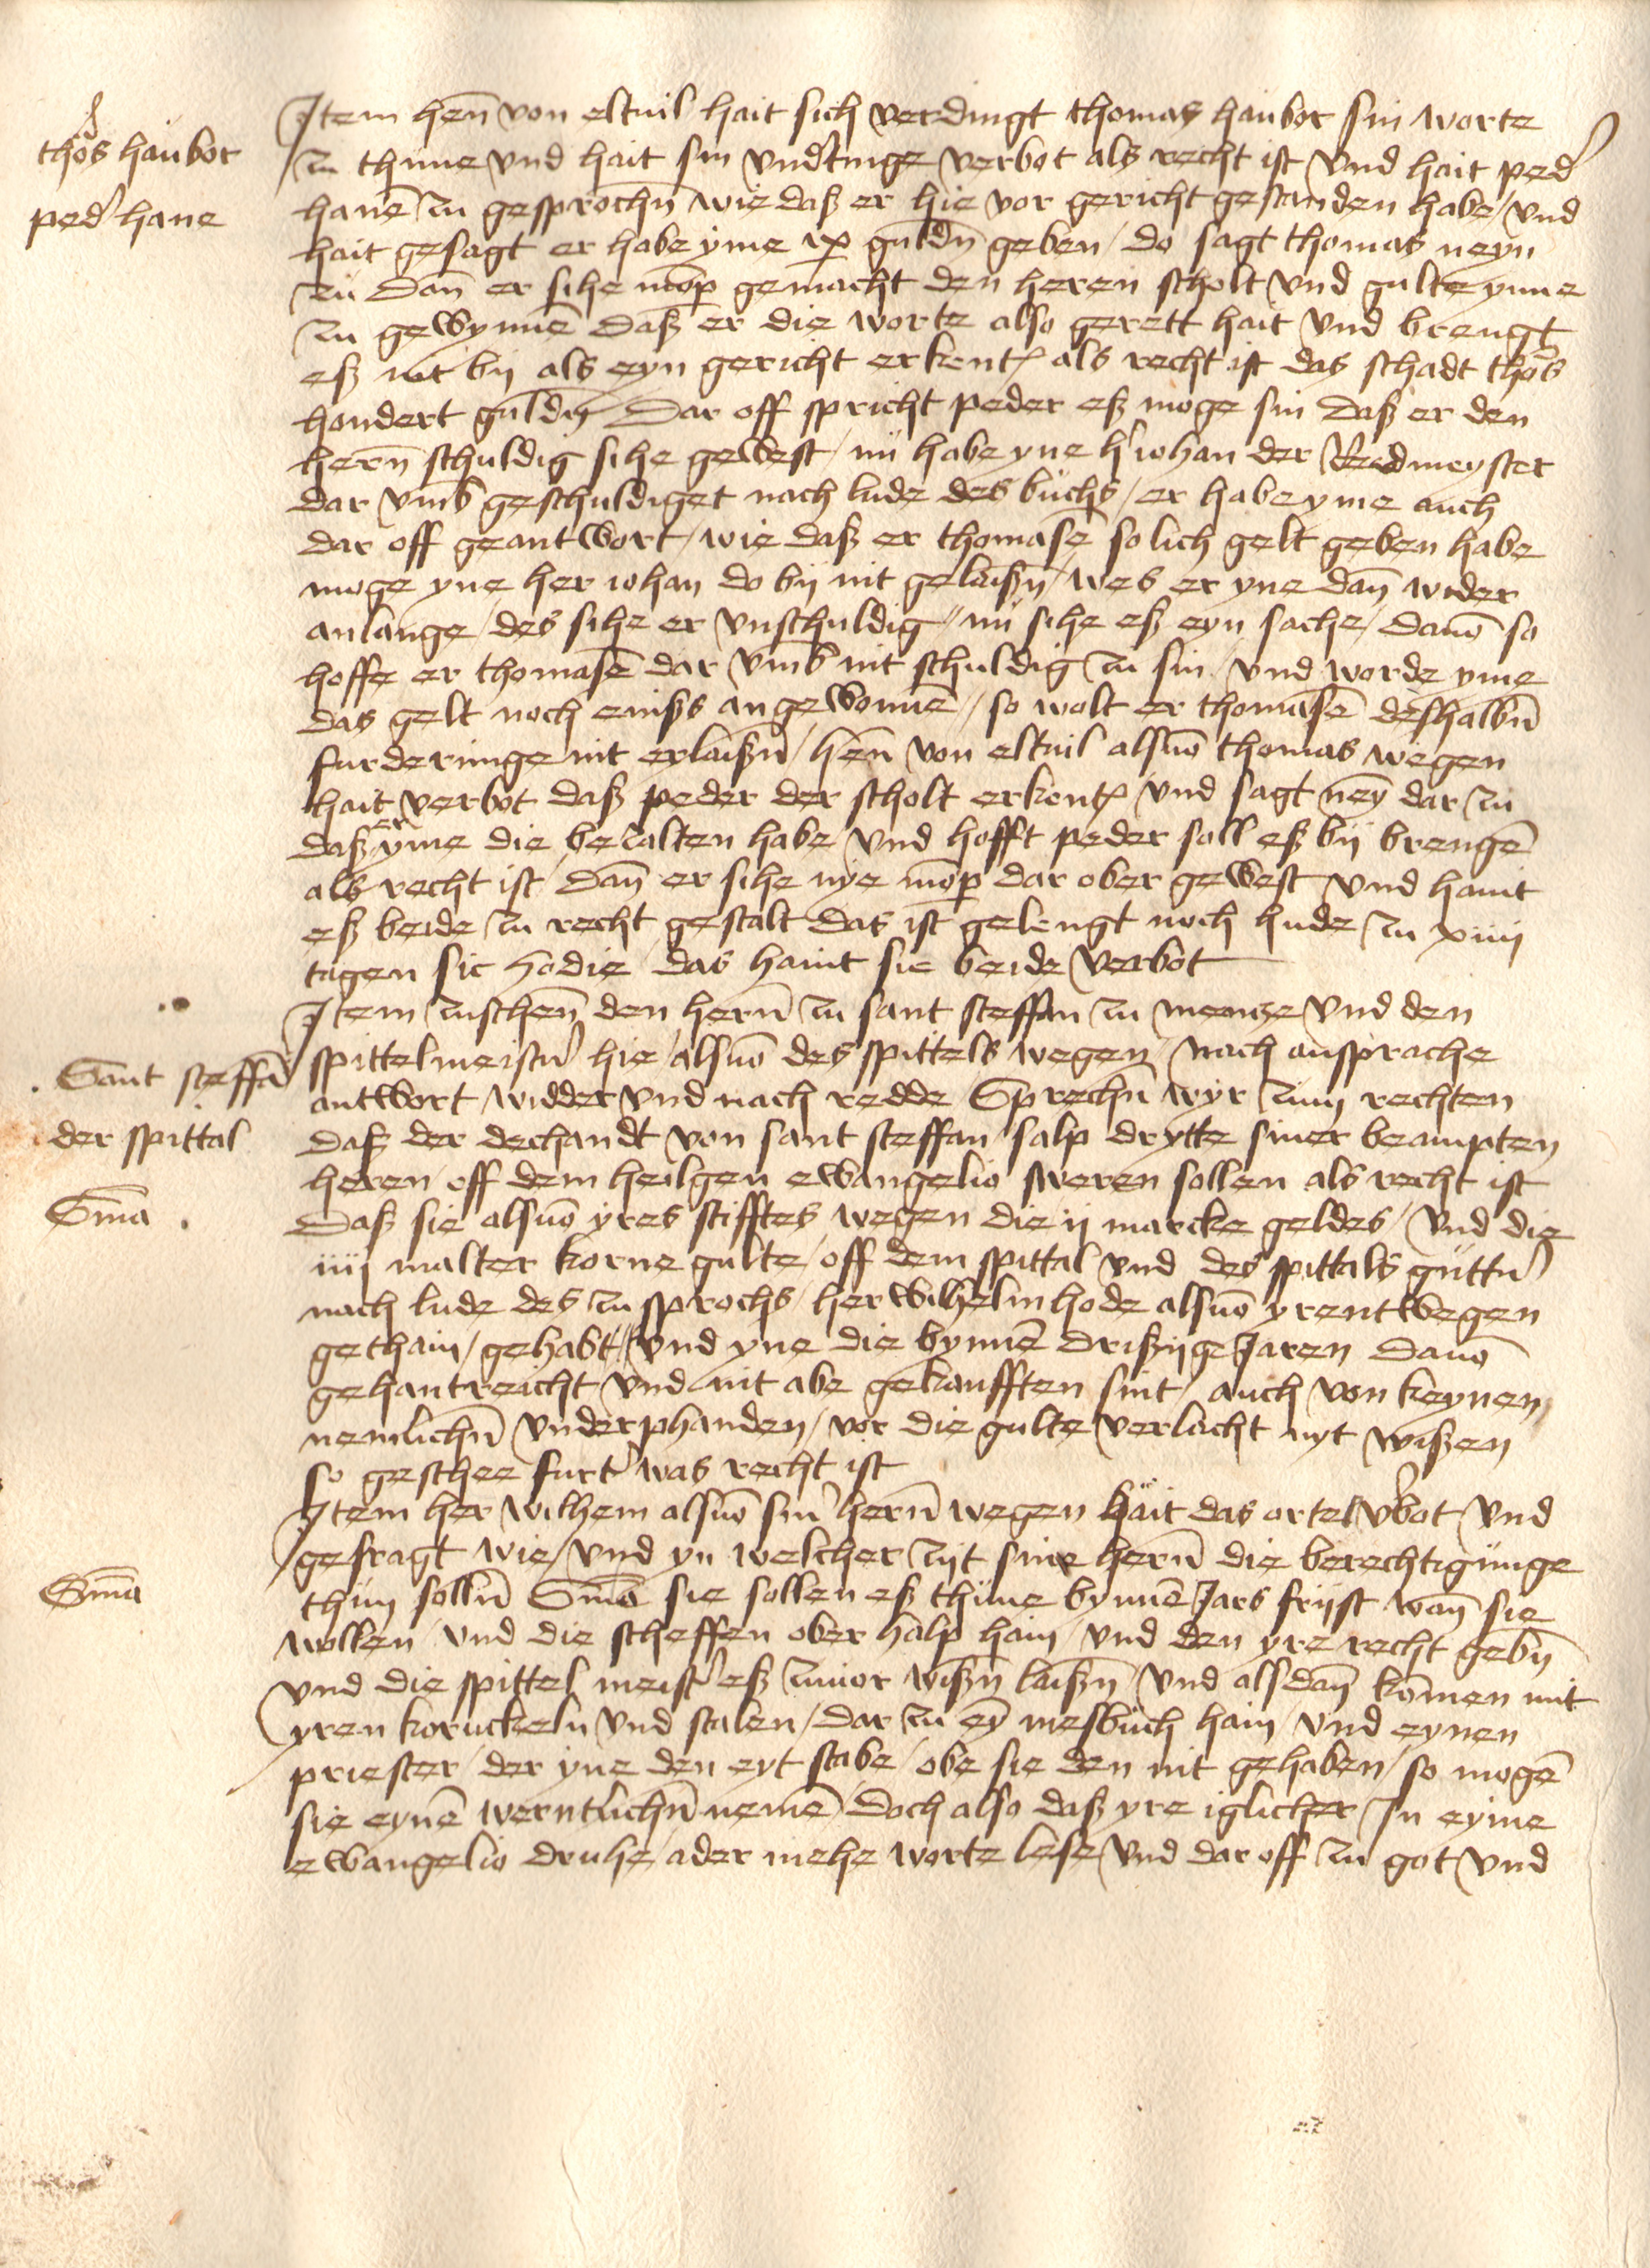 thōs haubor
ped' hane
Item hen̄ von eltuil hait sich verdingt thomas haubor sin worte
zu thune vnd hait sin vnd'tinge verbot als recht ist vnd hait ped'
hanē zu gesprochn̄ wie daß er hie vor gericht gestanden habe / vnd
hait gesagt er habe yme ix guldn̄ geben / do sagt thomas neyn
zu dan̄ er sihe mōp gemacht den heren scholt vnd gulte yme
zu gewynnē daß er die worte also gerett hait vnd brengt
eß nit bij als eyn gericht erkent als recht ist das schadt thōs
hondert guldn̄ Dar off spricht peder eß moge sin daß er den
hern̄ schuldig sihe gewest / nü habe yne h' iohan der Redmeyster
dar vmb geschuldiget nach lude des buchs / er habe yme auch
dar off geantwort / wie daß er thomasē solich gelt geben habe
moge yne her iohan do bij nit gelaißn̄ / wes er yne dan̄ wider
anlange / des sihe er vnschuldig // nü sihe eß eyn sache / dauō so
hoffe er thomasē dar vmb nit schuldig zu sin / vnd worde yme
das gelt noch einßs an gewonnē / so wolt er thomasē deßhalbn̄
furderunge nit erlaißn̄ / hen̄ von eltuil alsuō thomas wegen
hait verbot daß peder der scholt erkent vnd sagt ney dar zu
daß er yme die bezalten habe vnd hofft peder soll eß bij brengē
als recht ist / dan̄ er sihe nye mōp dar ober gewest vnd haint
eß beide zu recht gestalt das ist gelengt noch hude zu xiiij
tagen sic hodie das haint sie beide verbot
Sant steffā
der spittal
Sma
Item zuschen̄ den hern̄ zu sant steffan zu mentze vnd den
spittelmeistn̄ hie / alsuō des spittels wegen / nach ansprache
antwort widder vnd nach redde Sprechn̄ wyr zum rechten
daß der dechandt von sant steffan salp drytte siner beampten
heren off dem heilgen ewangelio sweren sollen als recht ist
Daß sie alsuō yres stifftes wegen die ij marcke geldes / vnd die
iiij malter korne gulte / off dem spittal vnd des spittals guttn̄
nach lude des zu sprochs / her wilhelm hode alsuō yrent wegen
gethain / gehabt / vnd yne die bynnē drißijge Jaren dauō
gehantreicht vnd nit abe gekaufften sint / auch von keynen
nemlichn̄ vnderphanden / vor die gulte verlacht nyt wißen
so geschee furt' was recht ist
Item her wilhem alsuō sin' hern̄ wegen hait das ortel v'bot vnd
gefragt wie / vnd yn welcher zijt sine hern̄ die berechtigunge
Sma
thun solln̄ Sma sie sollen eß thune bynnē Jars frijst wan̄ sie
wollen / vnd die scheffen ober halp hain / vnd den yre recht gebn̄
vnd die spittel meist' eß zuuor wißn̄ laißn̄ / vnd alsdan̄ kōmen mit
yren koruckeln vnd stalen / dar zu ey mesbuch hain / vnd eynen
priester / der yne den eyt stabe / obe sie den nit gehaben / so mogē
sie eynē werntlichn̄ nemē / doch also daß yre iglicher In eyme
ewangelio druhe / ader mehe worte lese vnd dar off zu got vnd